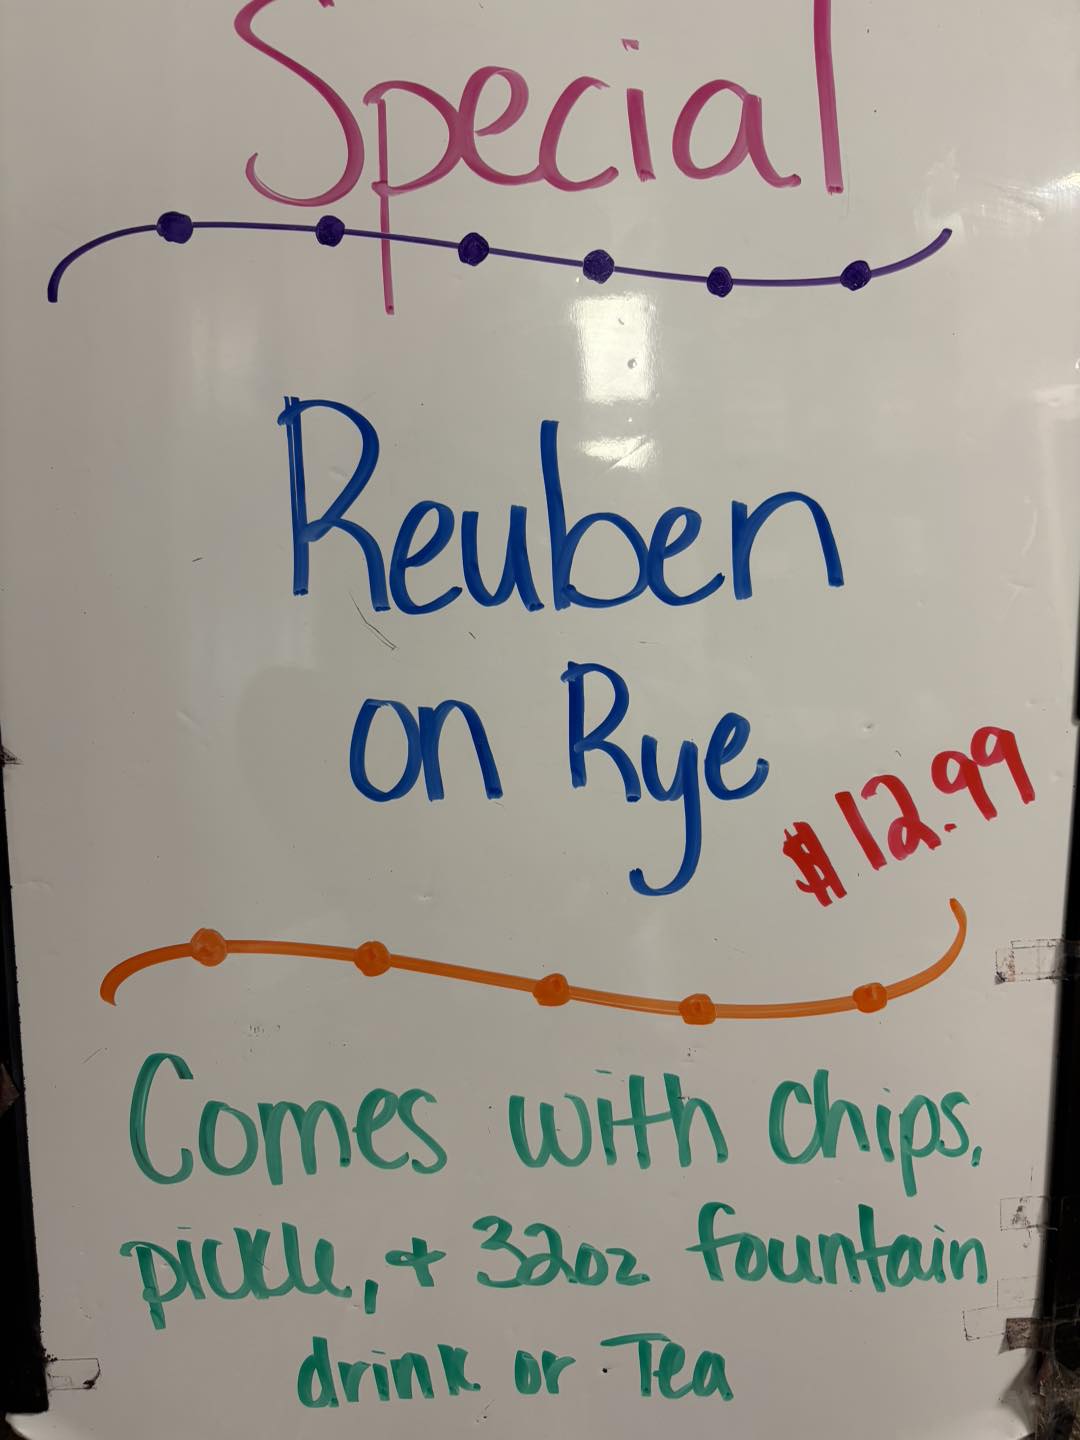 Special
Reuben
on Rye
$12.99
Comes with Chips,
pickle, + 32oz fountain
drink or Tea